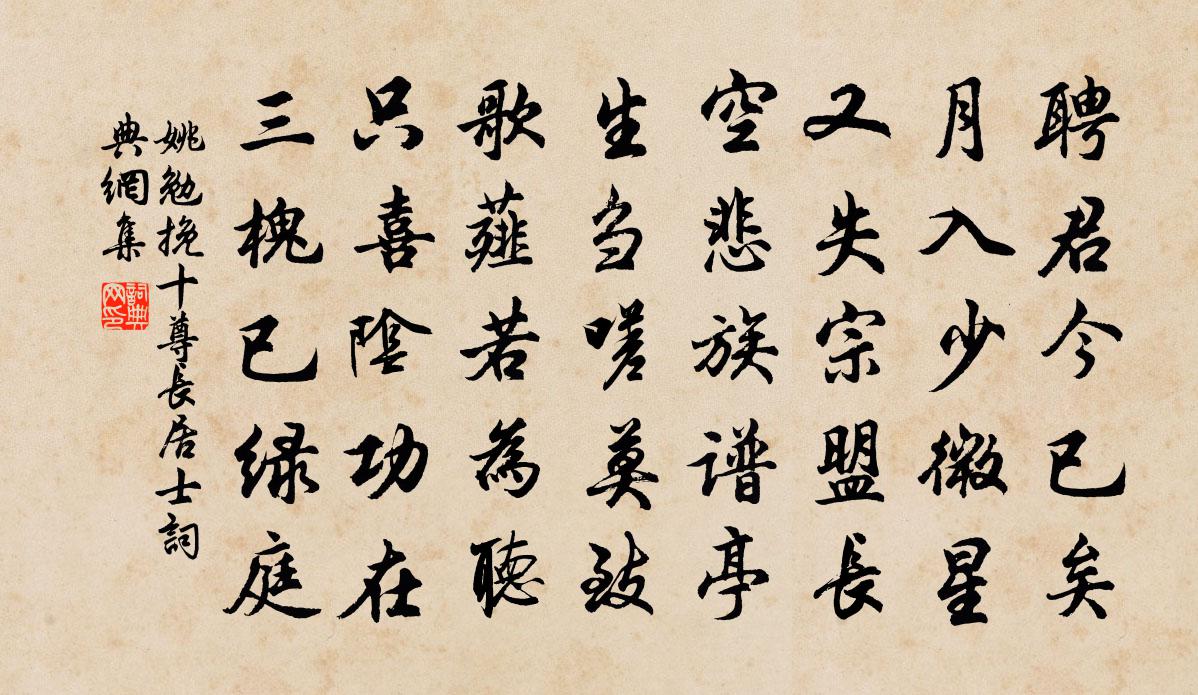 聘君今已矣
月入少微星
又失宗盟長
空悲族谱亭
生刍嗟莫致
歌薤若為聽
只喜陰功在
三槐已緑庭
姚勉挽十尊長居士詞
典網集
詞典网印